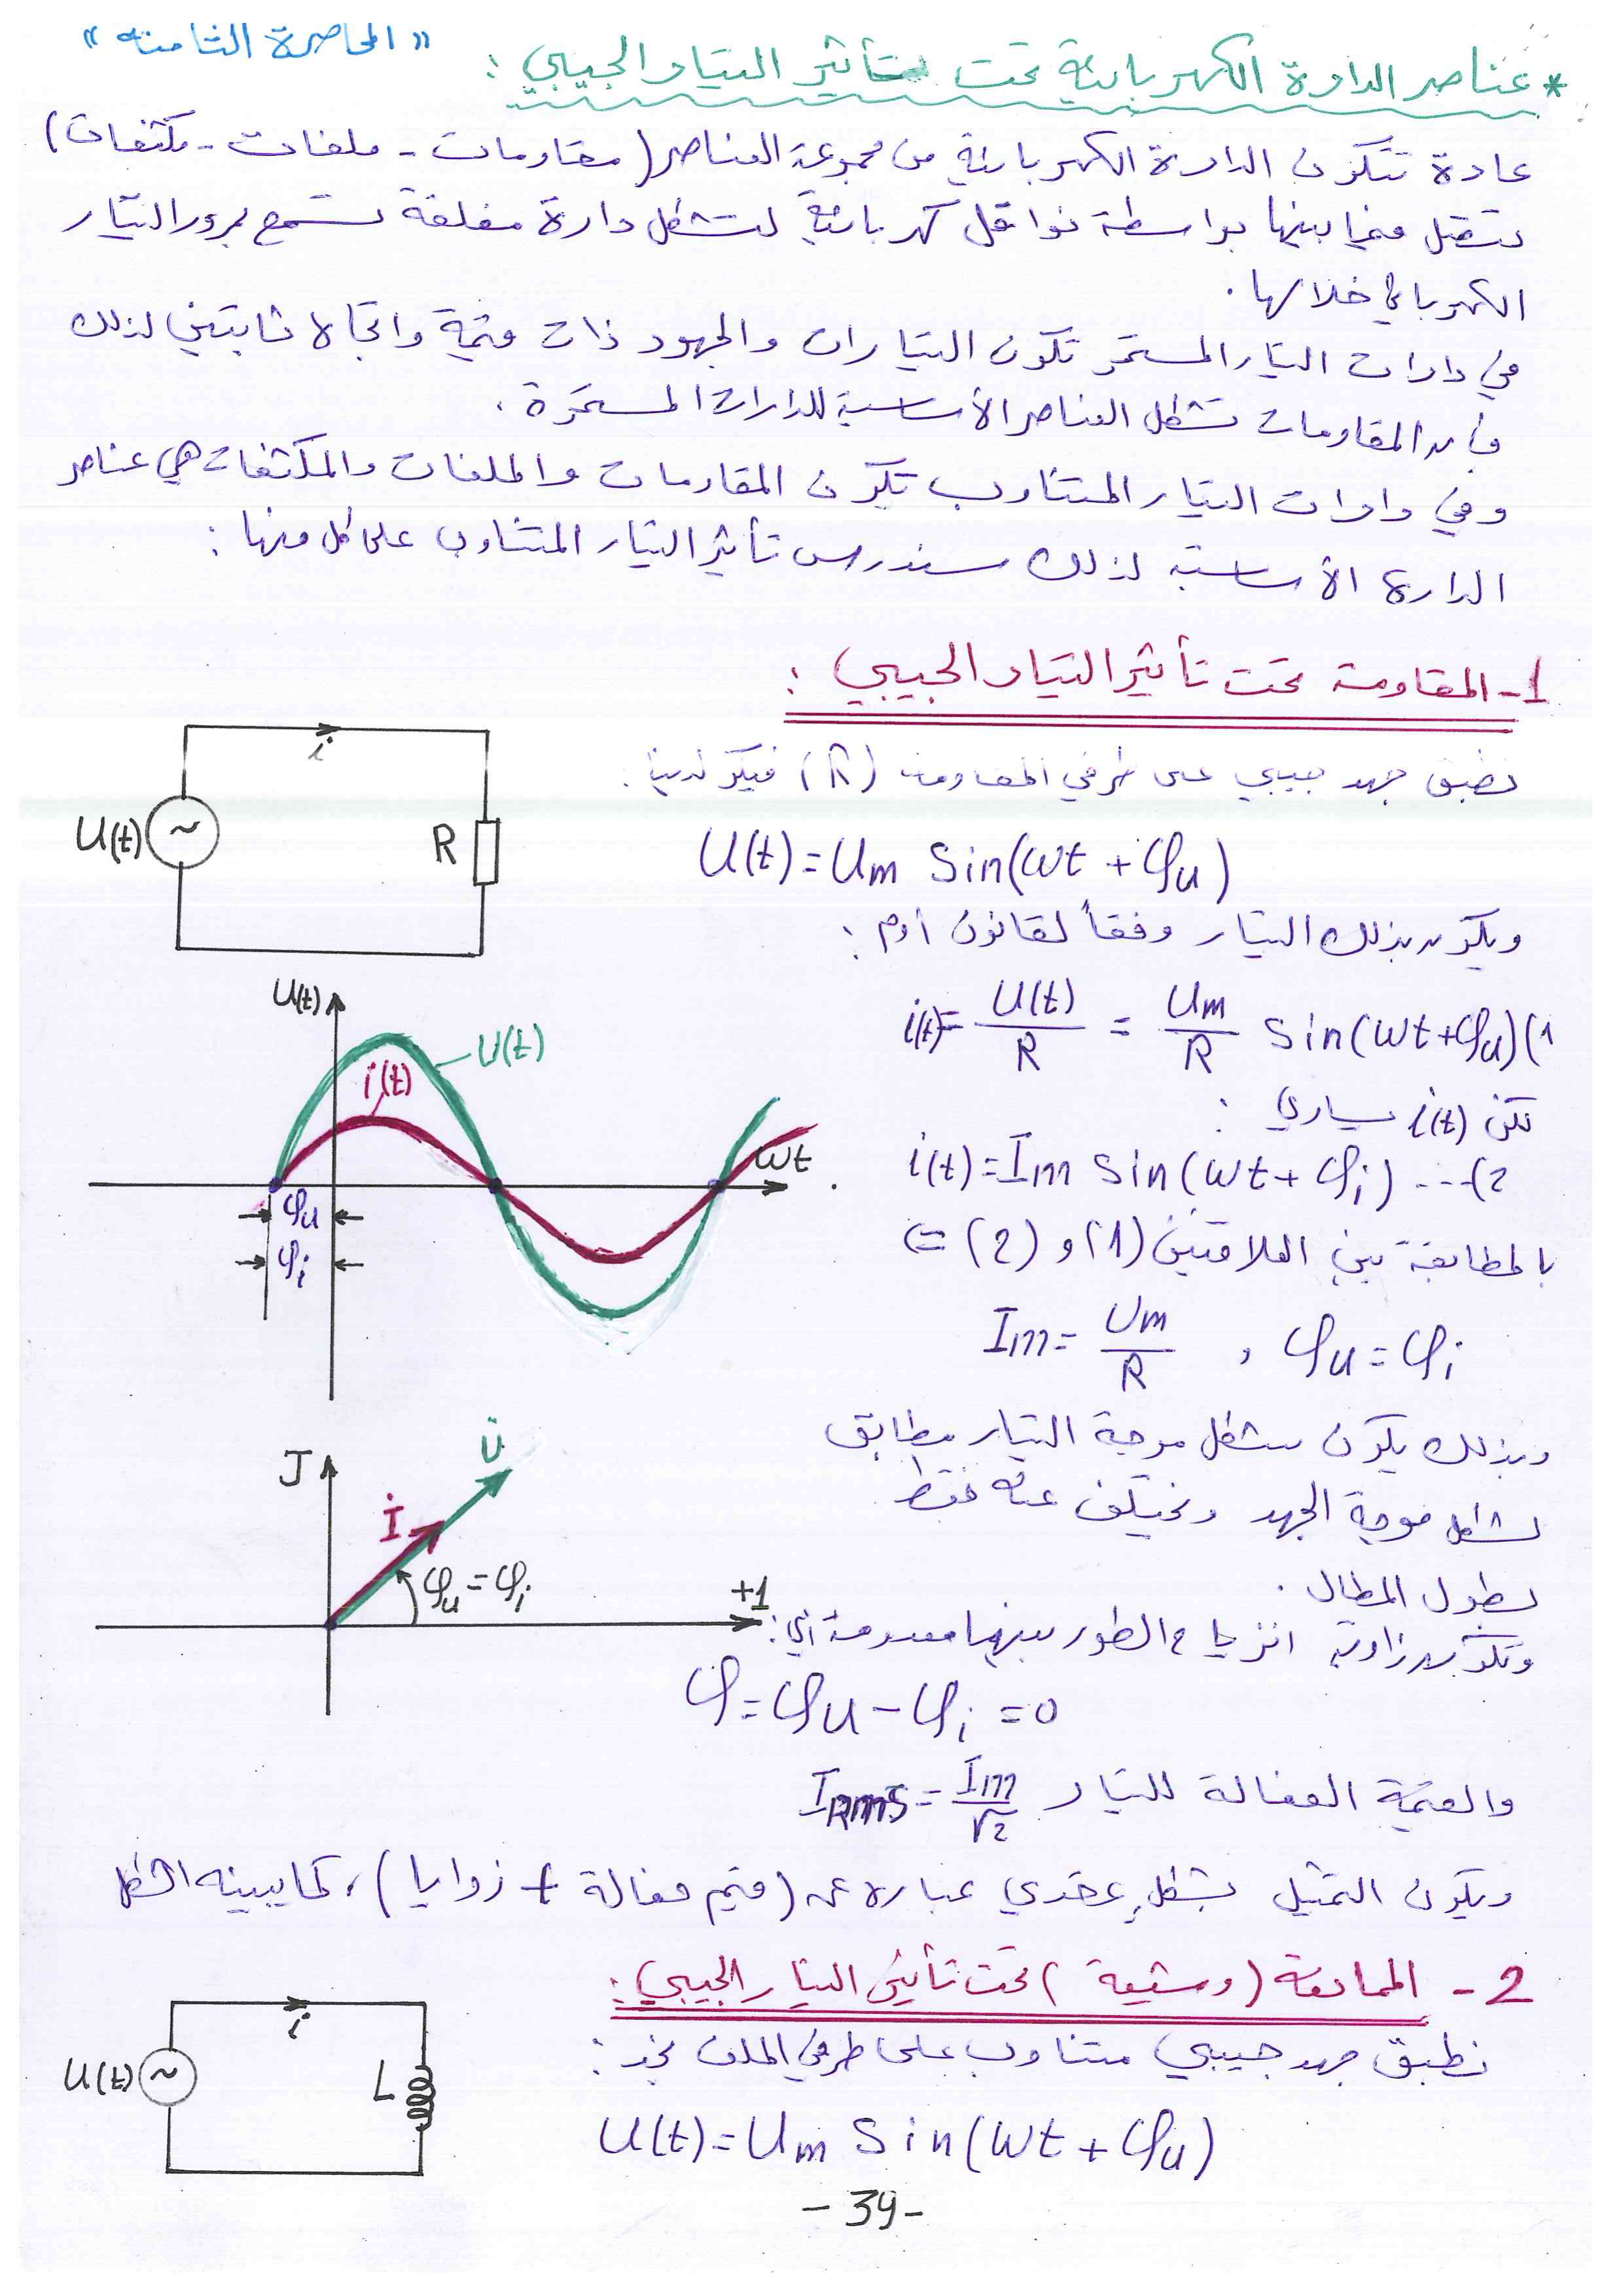 « المحاضرة الثامنة »
* عناصر الدارة الكهربائية تحت تأثير التيار الجيبي :
عادة تتكون الدارة الكهربائية من مجموعة العناصر (مقاومات - ملفات - مكثفات)
تتصل فيما بينها بواسطة نواقل كهربائية لتشكل دارة مغلقة تسمح بمرور التيار
الكهربائي خلالها .
في دارات التيار المستمر تكون التيارات والجهود ذات قيمة واتجاه ثابتين لذلك
فإن المقاومات تشكل العناصر الأساسية للدارات المستمرة .
وفي دارات التيار المتناوب تكون المقاومات والملفات والمكثفات هي عناصر
الدارة الأساسية لذلك سندرس تأثير التيار المتناوب على كل منها :
1- المقاومة تحت تأثير التيار الجيبي :
نطبق جهد جيبي على طرفي المقاومة (R) فيكون لدينا :
U(t) = Um Sin(wt + φu)
ويكون بذلك التيار وفقاً لقانون أوم :
i(t) = U(t)/R = Um/R Sin(wt+φu) (1
لكن i(t) يساوي :
i(t) = Im Sin(wt + φi) ---(2
بالمطابقة بين العلاقتين (1) و (2) ⇐
Im = Um/R , φu = φi
وبذلك يكون شكل موجة التيار مطابق
لشكل موجة الجهد ويختلف عنه فقط
بطول المطال .
وتكون زاوية انزياح الطور بينهما معدومة أي :
φ = φu - φi = 0
والقيمة الفعالة للتيار IRms = Im/√2
ويكون التمثيل بشكل عقدي عبارة عن (قيم فعالة + زوايا) ، كما يبينه الشكل
2 - الممانعة (وشيعة) تحت تأثير التيار الجيبي :
نطبق جهد جيبي متناوب على طرفي الملف نجد :
U(t) = Um Sin(wt + φu)
- 39 -
i
U(t)
R
U(t)
U(t)
i(t)
wt
φu
φi
J
U̇
İ
φu = φi
+1
i
U(t)
L